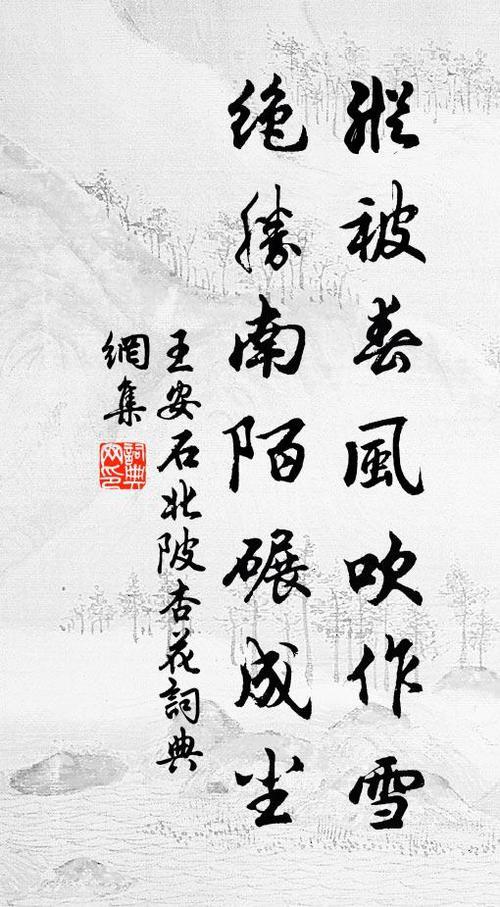 縱被春風吹作雪
絶勝南陌碾成尘
王安石北陂杏花詞典
網集
詞典
网印